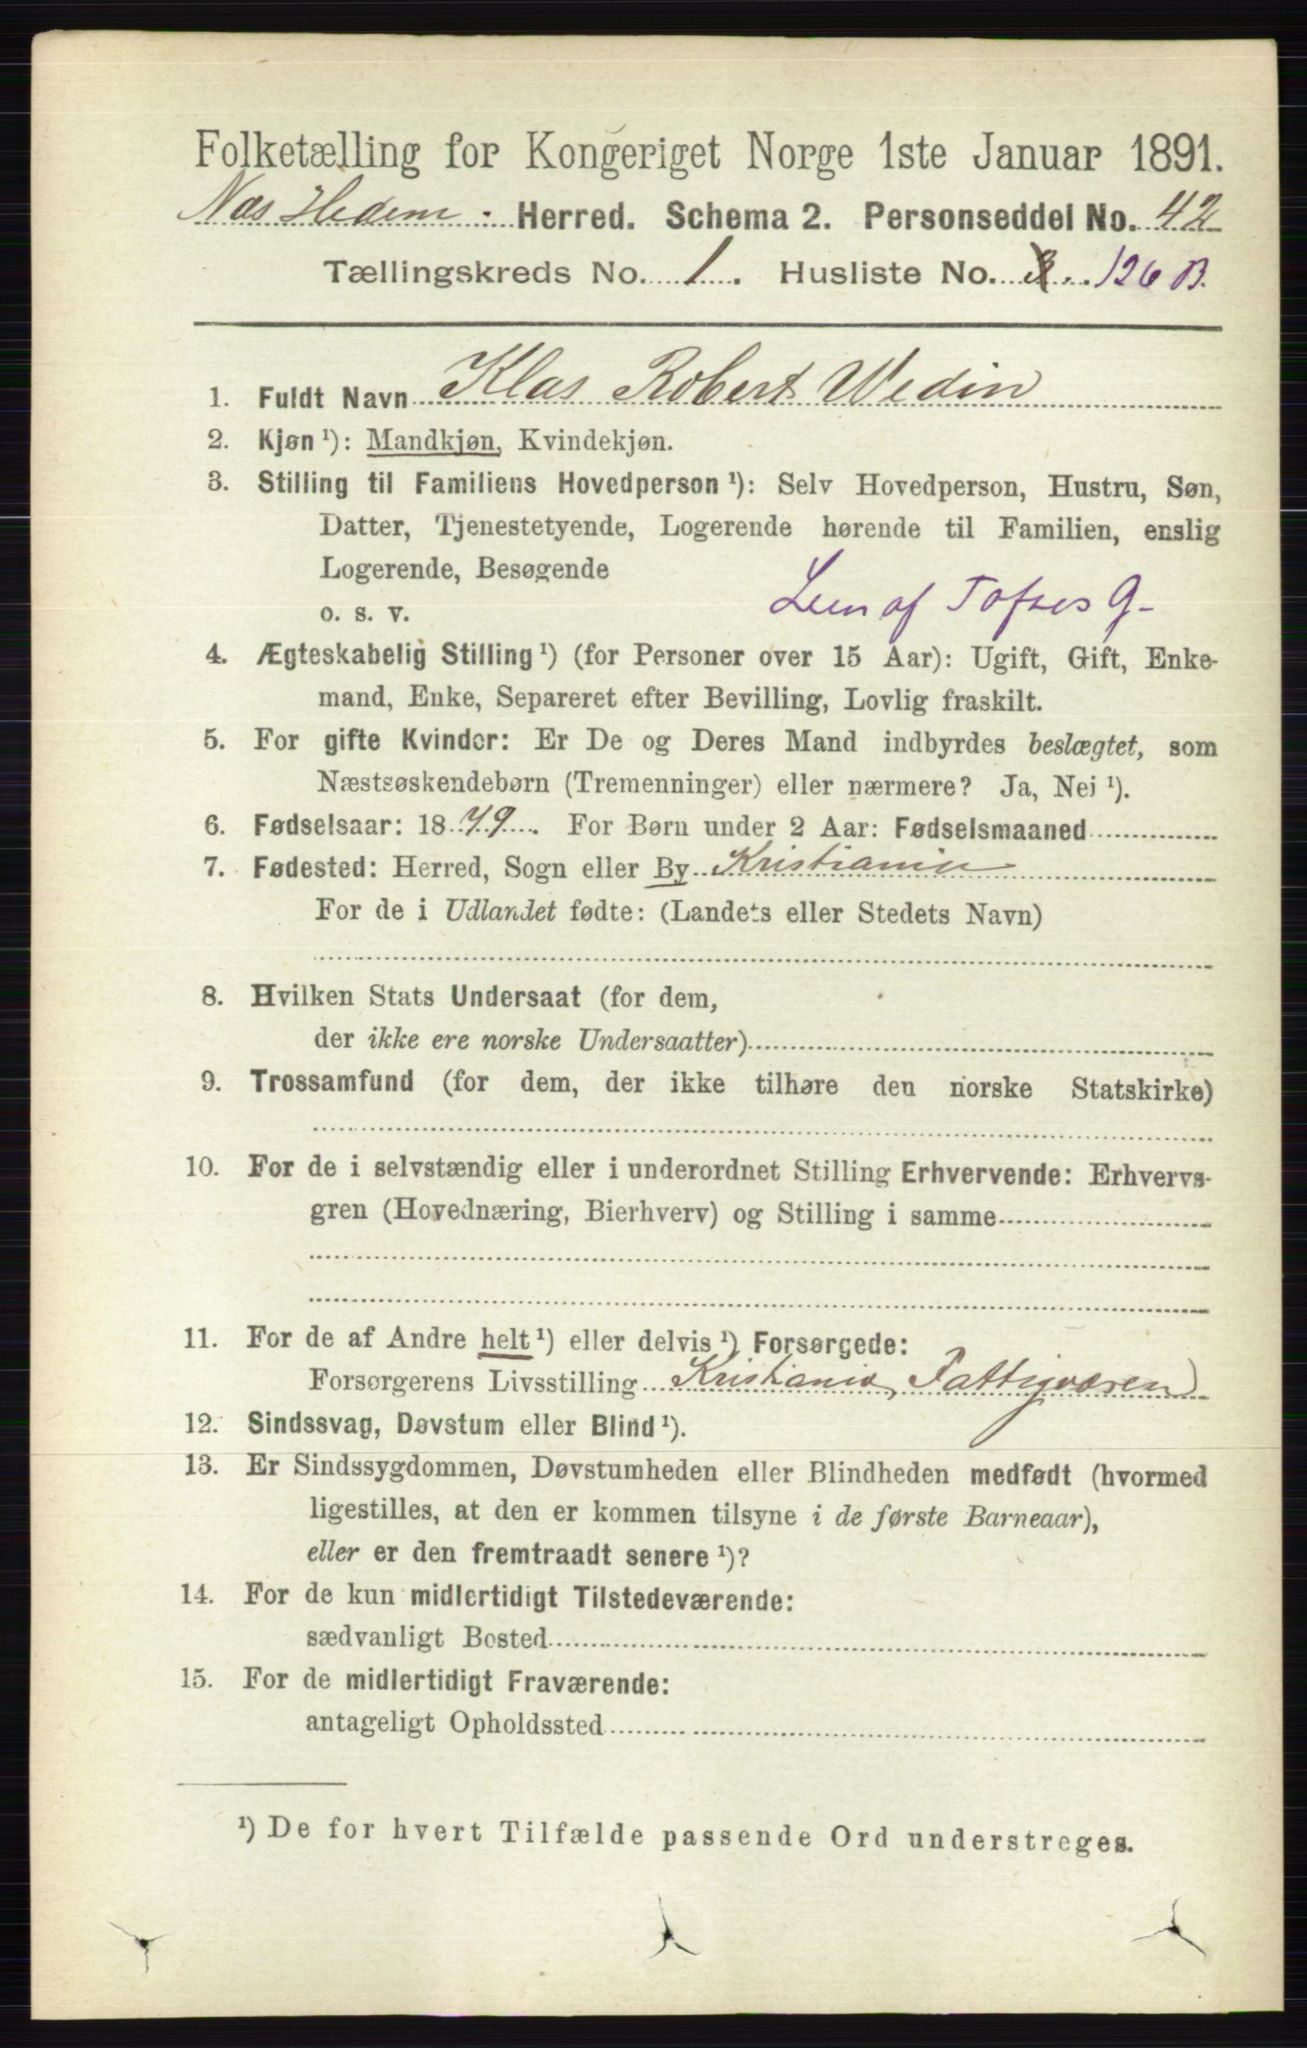 Folketælling for Kongeriget Norge 1ste Januar 1891.
Nas Hedem: Herred. Schema 2. Personseddel No. 42
Tællingskreds No. 1. Husliste No. 126 B.
1. Fuldt Navn Klas Robert Wedin
2. Kjøn ¹): Mandkjøn, Kvindekjøn.
3. Stilling til Familiens Hovedperson ¹): Selv Hovedperson, Hustru, Søn,
Datter, Tjenestetyende, Logerende hørende til Familien, enslig
Logerende, Besøgende
o. s. v. Lem af Toftes G-
4. Ægteskabelig Stilling ¹) (for Personer over 15 Aar): Ugift, Gift, Enke-
mand, Enke, Separeret efter Bevilling, Lovlig fraskilt.
5. For gifte Kvinder: Er De og Deres Mand indbyrdes beslægtet, som
Næstsøskendebørn (Tremenninger) eller nærmere? Ja, Nei ¹).
6. Fødselsaar: 1879. For Børn under 2 Aar: Fødselsmaaned
7. Fødested: Herred, Sogn eller By Kristiania
For de i Udlandet fødte: (Landets eller Stedets Navn)
8. Hvilken Stats Undersaat (for dem,
der ikke ere norske Undersaatter)
9. Trossamfund (for dem, der ikke tilhøre den norske Statskirke)
10. For de i selvstændig eller i underordnet Stilling Erhvervende: Erhvervs-
gren (Hovednæring, Bierhverv) og Stilling i samme
11. For de af Andre helt ¹) eller delvis ¹) Forsørgede:
Forsørgerens Livsstilling Kristiania Fattigvæsen
12. Sindssvag, Døvstum eller Blind ¹).
13. Er Sindssygdommen, Døvstumheden eller Blindheden medfødt (hvormed
ligestilles, at den er kommen tilsyne i de første Barneaar),
eller er den fremtraadt senere ¹)?
14. For de kun midlertidigt Tilstedeværende:
sædvanligt Bosted
15. For de midlertidigt Fraværende:
antageligt Opholdssted
¹) De for hvert Tilfælde passende Ord understreges.